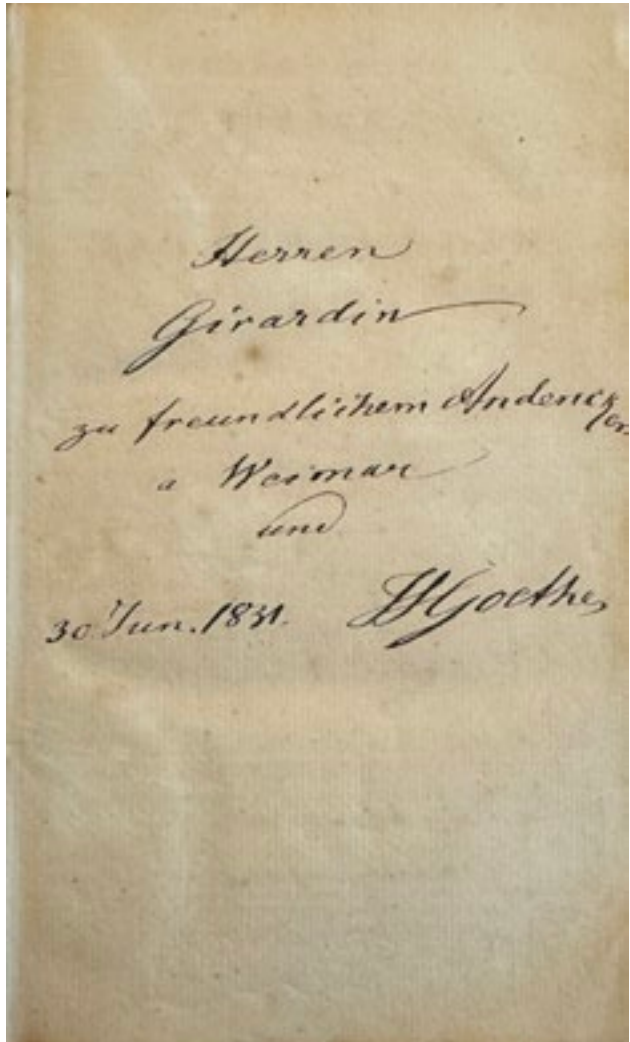 Herren
Girardin
zu freundlichem Andencken
a Weimar
und
30 Jun. 1831. JWGoethe